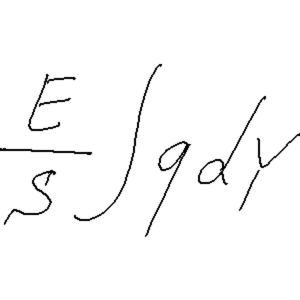 \frac{E}{S} \int q dy